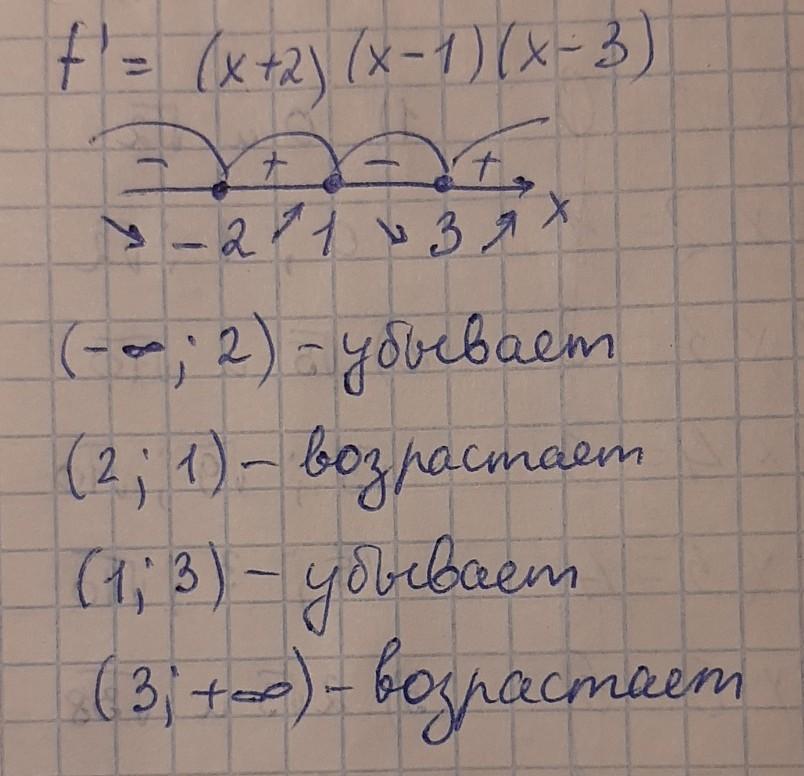 f' = (x+2)(x-1)(x-3)
- + - +
↘ -2 ↗ 1 ↘ 3 ↗ x
(-∞; 2) - убывает
(2; 1) - возрастает
(1; 3) - убывает
(3; +∞) - возрастает